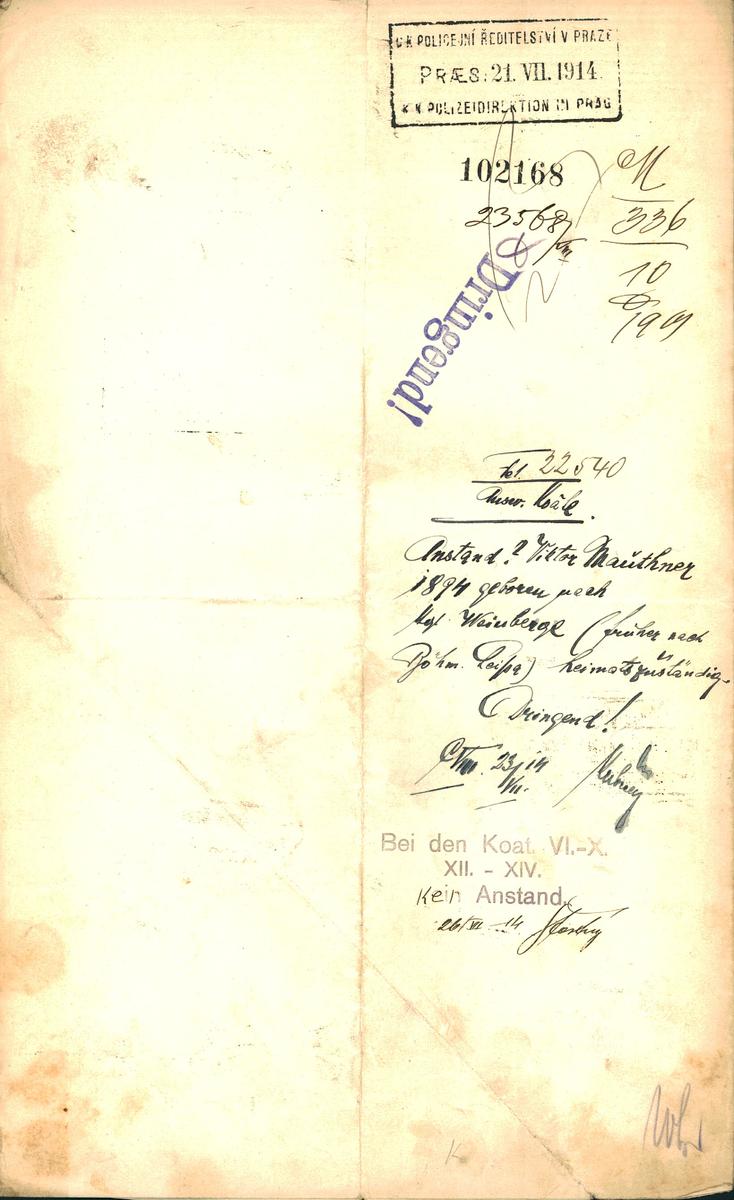 K K POLICEJNÍ ŘEDITELSTVÍ V PRAZE
PRÆS: 21. VII. 1914
K K POLIZEIDIREKTION IN PRAG
102168
M
336
10
1901
23568/VIII
Dringend!
22540
Ausw. Koäte.
Anstand? Viktor Mauthner
1894 geboren nach
Kgl. Weinberge (früher nach
Böhm. Leipa) heimatszuständig.
Dringend!
23/VII. 14
Bei den Koat. VI.-X.
XII. - XIV.
Kein Anstand.
26/VII 14
K